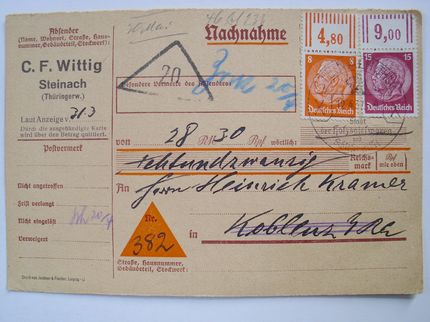 Absender
(Name, Wohnort, Straße, Haus-
nummer, Gebäudeteil, Stockwerk)
C. F. Wittig
Steinach
(Thüringerw.)
Laut Anzeige v. 313
Durch die ausgehändigte Karte
wird über den Betrag quittiert.
Postvermerk
Nicht angetroffen
Frist verlangt
Nicht eingelöst
Verweigert
Nachnahme
20
Besondere Vermerke des Absenders
4,80
9,00
8
8
Deutsches Reich
15
15
Deutsches Reich
Stadt
der Holzspielwaren
von 28 RM 30 Rpf wörtlich:
Achtundzwanzig
Reichs-
mark
Rpf
wie oben
An Herrn Heinrich Kramer
Nr.
382
in Koblenz
Straße, Hausnummer,
Gebäudeteil, Stockwerk: